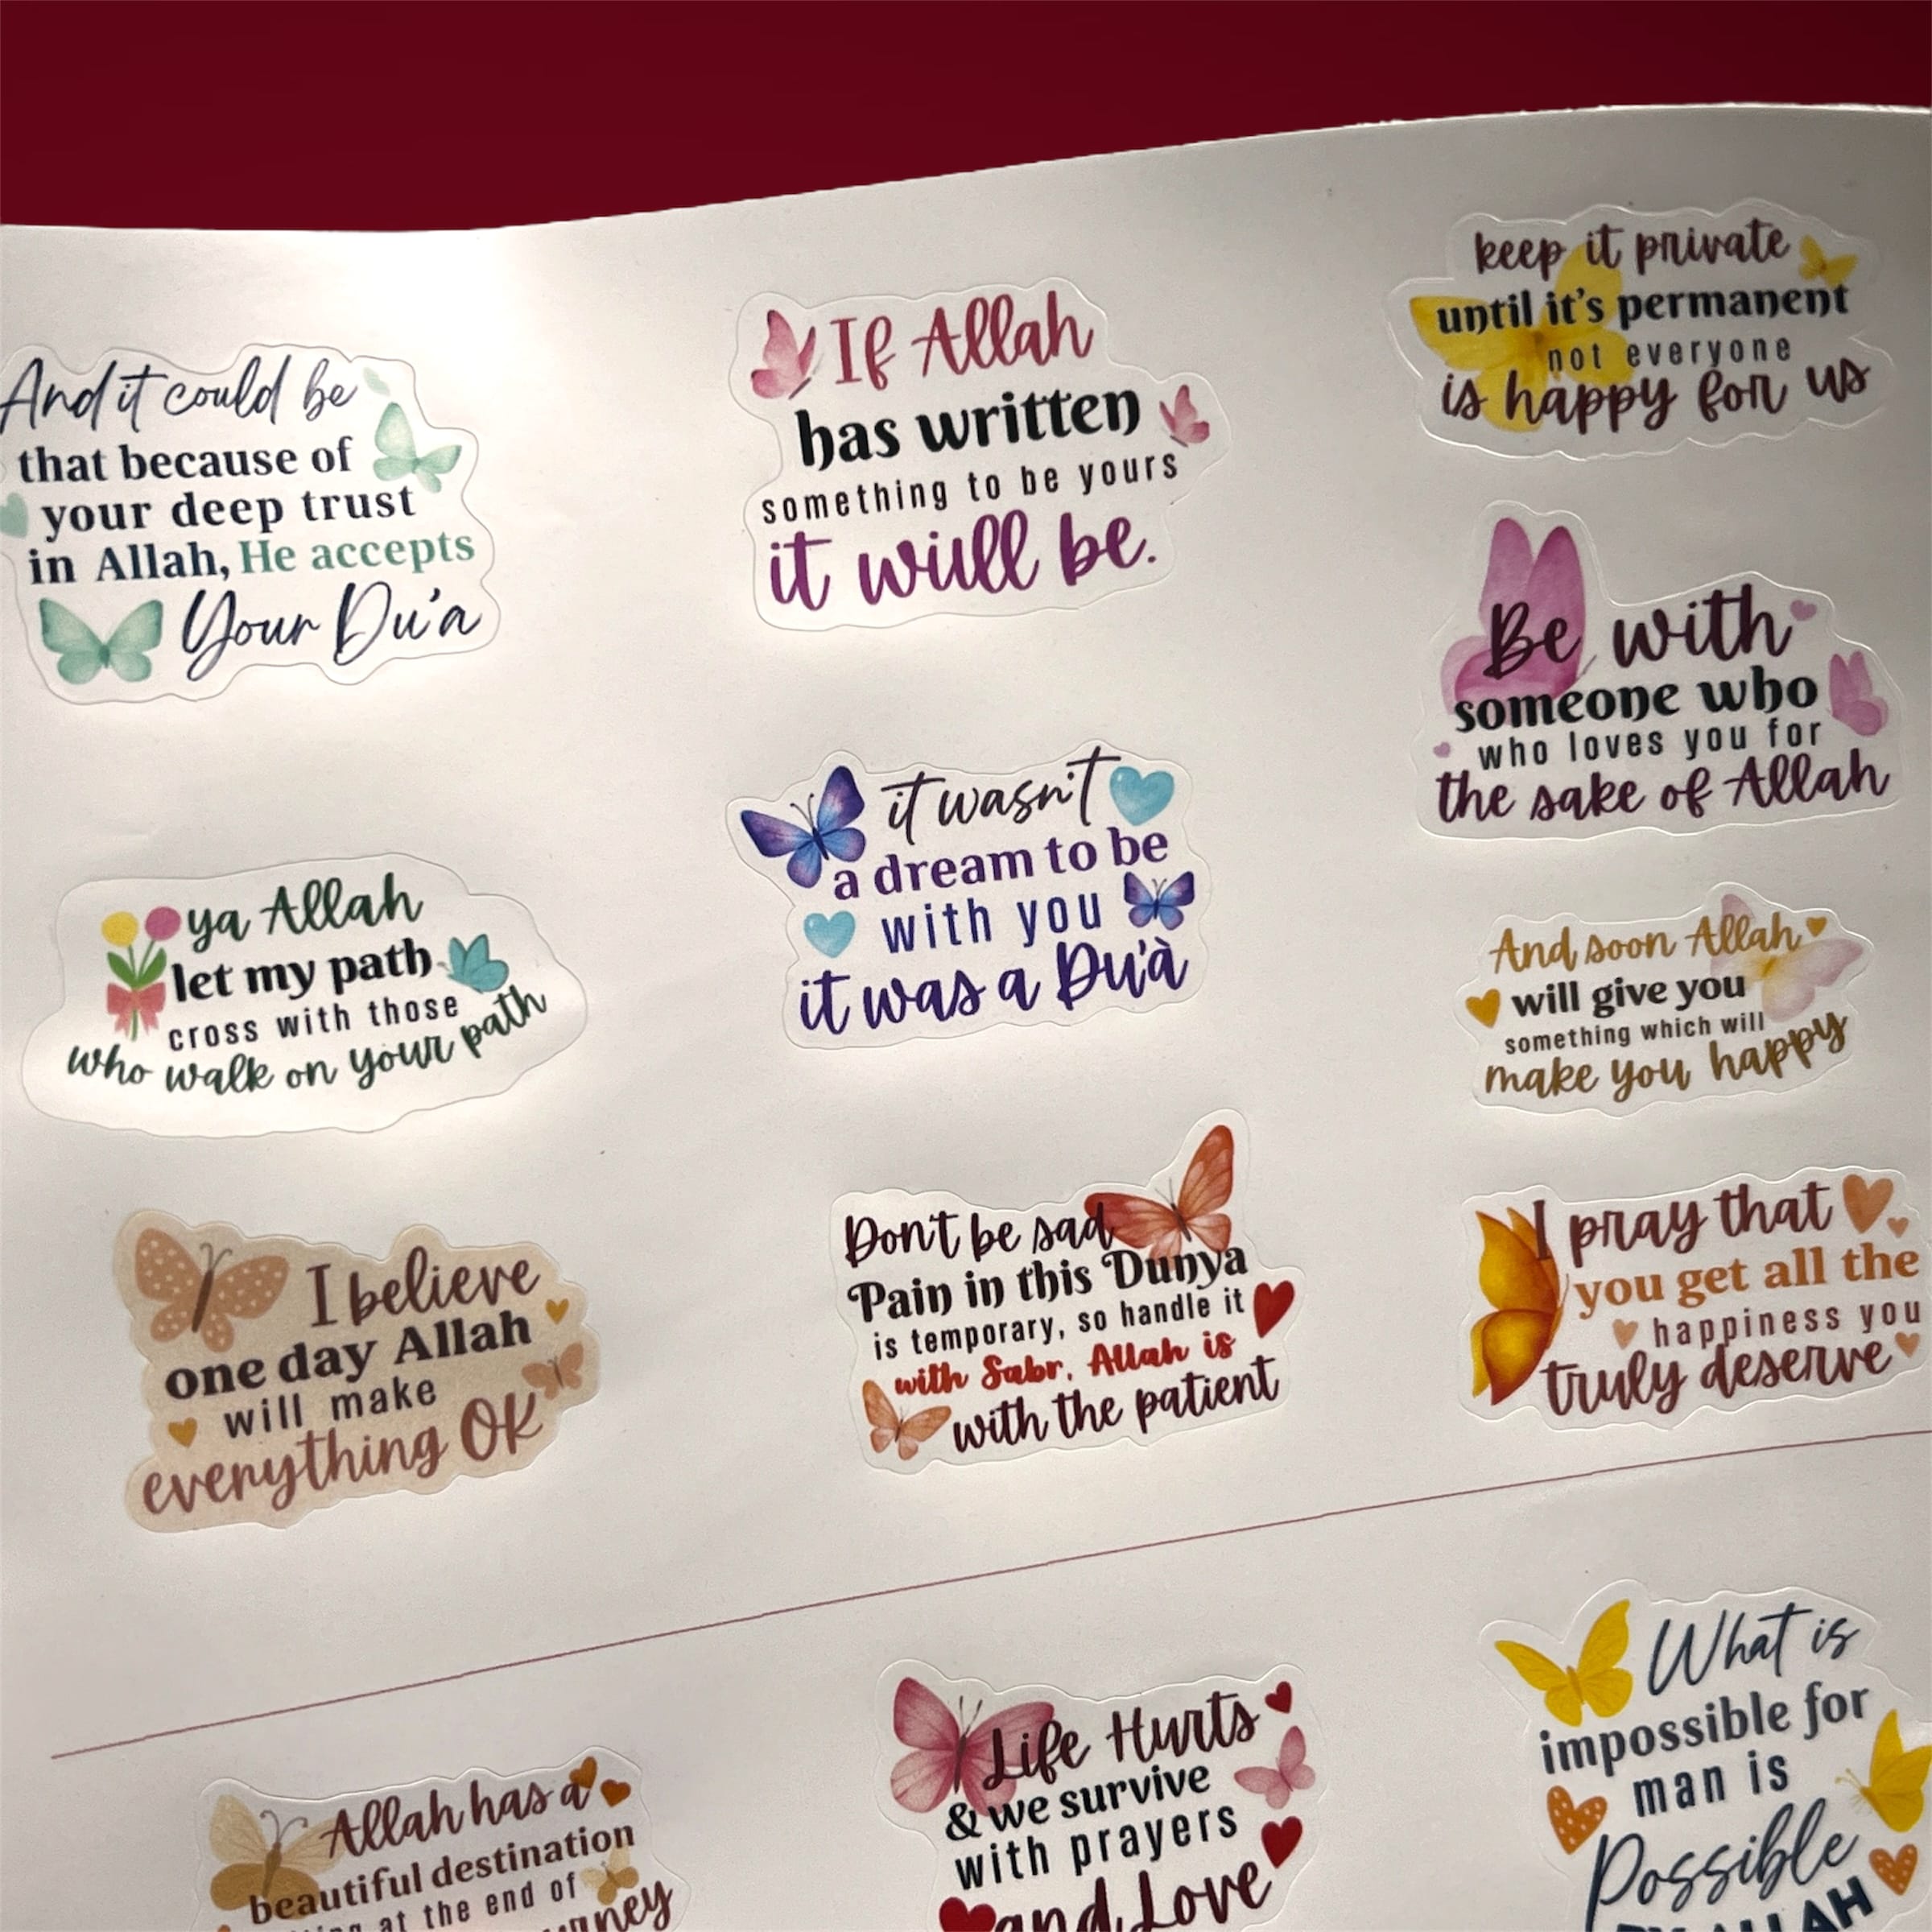 And it could be
that because of
your deep trust
in Allah, He accepts
Your Du'a
If Allah
has written
something to be yours
it will be.
keep it private
until it's permanent
not everyone
is happy for us
Be with
someone who
who loves you for
the sake of Allah
ya Allah
let my path
cross with those
who walk on your path
it wasn't
a dream to be
with you
it was a Du'à
And soon Allah
will give you
something which will
make you happy
I believe
one day Allah
will make
everything OK
Don't be sad
Pain in this Dunya
is temporary, so handle it
with Sabr, Allah is
with the patient
I pray that
you get all the
happiness you
truly deserve
Allah has a
beautiful destination
at the end of
Life Hurts
& we survive
with prayers
and Love
What is
impossible for
man is
Possible
BY ALLAH